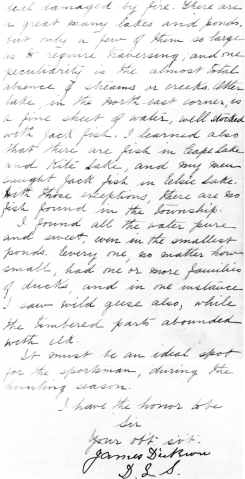 soil damaged by fire. There are
a great many lakes and ponds,
but only a few of them so large
as to require traversing, and one
peculiarity is the almost total
absence of streams or creeks. Otter
lake in the North east corner, is
a fine sheet of water, well stocked
with jack fish. I learned also
that there are fish in Lake
and Kite Lake, and my men
caught Jack fish in Elsie Lake.
With those exceptions, there are no
fish found in the township.
I found all the water pure
and sweet, even in the smallest
ponds. Every one, no matter how
small, had one or more families
of ducks, and in one instance
I saw wild geese also, while
the timbered parts abounded
with elk.
It must be an ideal spot
for the sportsman, during the
hunting season.
I have the honor to be
Sir
Your obt. svt.
James Dickson
D. L. S.